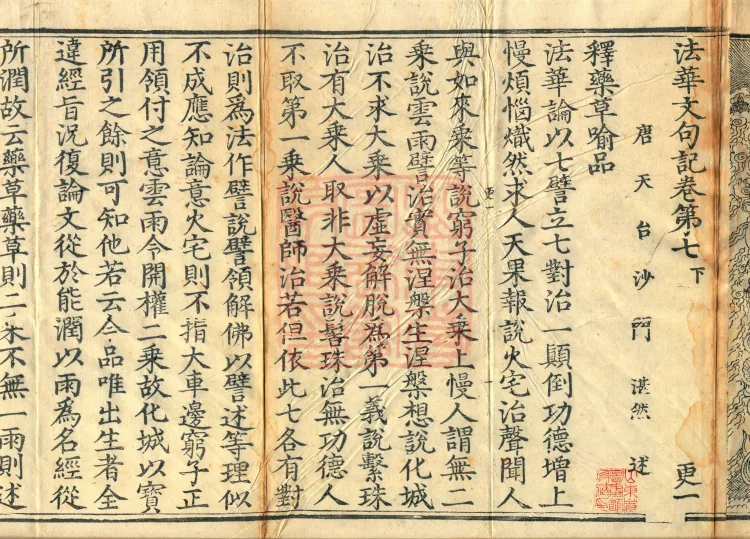 法華文句記卷第七下 更一
唐天台沙門 湛然 述
釋藥草喻品
法華論以七譬立七對治一顛倒功德增上
慢煩惱熾然求人天果報說火宅治聲聞人
與如來乘等說窮子治大乘上慢人謂無二
乘說雲雨譬治實無涅槃生涅槃想說化城
治不求大乘以虛妄解脫為第一義說繫珠
治有大乘人取非大乘說髻珠治無功德人
不取第一乘說醫師治若但依此七各有對
治則爲法作譬說譬領解佛以譬述等理似
不成應知論意火宅則不指大車邊窮子正
用領付之意雲雨令開權二乘故化城以寶
所引之餘則可知他若云今品唯出生者全
違經旨況復論文從於能潤以雨爲名經從
所潤故云藥草藥草則二木不無一雨則述